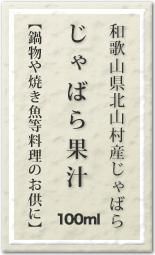 和歌山県北山村産じゃばら
じゃばら果汁
【鍋物や焼き魚等料理のお供に】
100ml